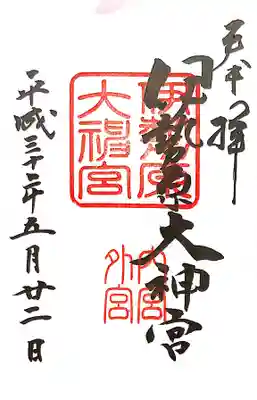 奉拝
伊勢原大神宮
伊勢原
大神宮
内宮
外宮
平成三十年五月廿二日